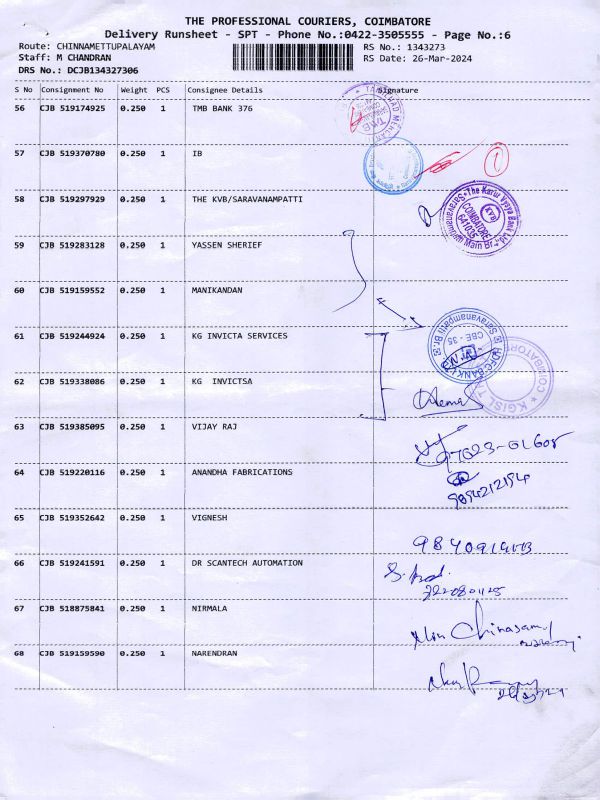 THE PROFESSIONAL COURIERS, COIMBATORE
Delivery Runsheet - SPT - Phone No.:0422-3505555 - Page No.:6
Route: CHINNAMETTUPALAYAM RS No.: 1343273
Staff: M CHANDRAN RS Date: 26-Mar-2024
DRS No.: DCJB134327306
S No Consignment No Weight PCS Consignee Details Signature
56 CJB 519174925 0.250 1 TMB BANK 376
TMB
57 CJB 519370780 0.250 1 IB
1
58 CJB 519297929 0.250 1 THE KVB/SARAVANAMPATTI
The Karur Vysya Bank Ltd
KVB
COIMBATORE
641035
Saravanampatti Main Br.
59 CJB 519283128 0.250 1 YASSEN SHERIEF
60 CJB 519159552 0.250 1 MANIKANDAN
61 CJB 519244924 0.250 1 KG INVICTA SERVICES
HDFC BANK
Saravanampatti Br.
CBE - 35
KGISL
COIMBATORE
62 CJB 519338086 0.250 1 KG INVICTSA
Hema
63 CJB 519385095 0.250 1 VIJAY RAJ
64 CJB 519220116 0.250 1 ANANDHA FABRICATIONS
9894212194
65 CJB 519352642 0.250 1 VIGNESH
66 CJB 519241591 0.250 1 DR SCANTECH AUTOMATION
67 CJB 518875841 0.250 1 NIRMALA
Chinasamy
68 CJB 519159590 0.250 1 NARENDRAN